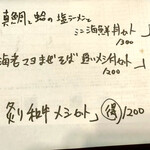 真鯛と蛤の塩ラーメンと
ミニ海鮮丼セット」
1300
海老マヨまぜそば 追いメシ付セット」
1200
炙り和牛メシセット」 得 1200